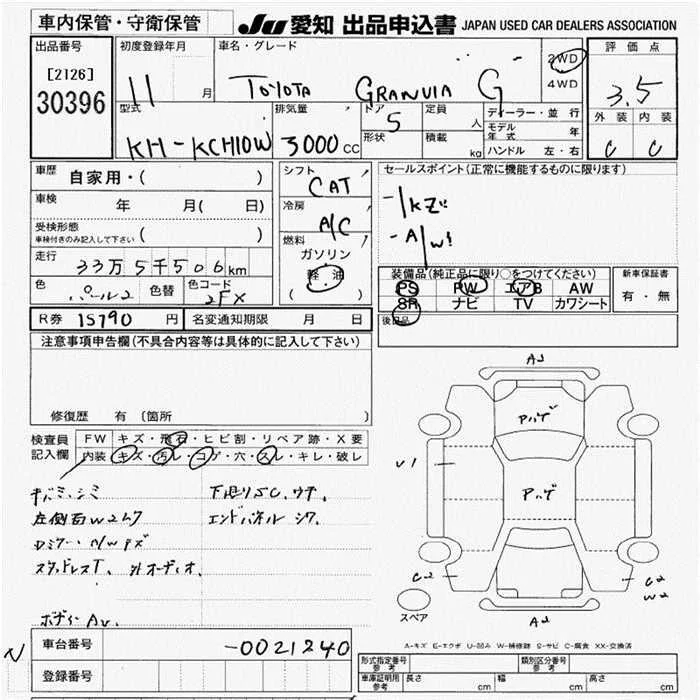 車内保管・守衛保管
JU 愛知 出品申込書 JAPAN USED CAR DEALERS ASSOCIATION
出品番号
[2126]
30396
初度登録年月
11 月
車名・グレード
TOYOTA GRANVIA G
2WD
4WD
評価点
3.5
外装 内装
C C
型式
KH-KCH10W
排気量
3000 CC
ドア
5
形状
定員
人
積載
kg
ディーラー・並行
モデル年式 年
ハンドル 左・右
車歴 自家用・( )
車検 年 月( 日)
受検形態
車検付きのみ記入して下さい ( )
走行 33万5千506km
色 パール2 色替 色コード 2FX
シフト
CAT
冷房
A/C
燃料
ガソリン
軽油
( )
セールスポイント(正常に機能するものに限ります)
-1KZ
-A/W!
装備品(純正品に限り○をつけてください)
PS PW エアB AW
SR ナビ TV カワシート
新車保証書
有・無
後日品
R券 15790 円 名変通知期限 月 日
注意事項申告欄(不具合内容等は具体的に記入して下さい)
修復歴 有 〔箇所 〕
検査員
記入欄
FW キズ・飛石・ヒビ割・リペア跡・X要
内装 キズ・汚レ・コゲ・穴・スレ・キレ・破レ
キバミ、シミ
下廻りSC.ウキ.
左側面W2ムラ
エンドパネル シワ.
スタッドレスT. 社外オーディオ.
A2
アハゲ
U1
アハゲ
C2
C2
W2
スペア
A2
A-キズ E-エクボ U-凹み W-補修跡 S-サビ C-腐食 XX-交換済
車台番号 -0021240
登録番号
N
型式指定番号
参考
類別区分番号
参考
車庫証明用
参考
長さ cm 幅 cm 高さ cm